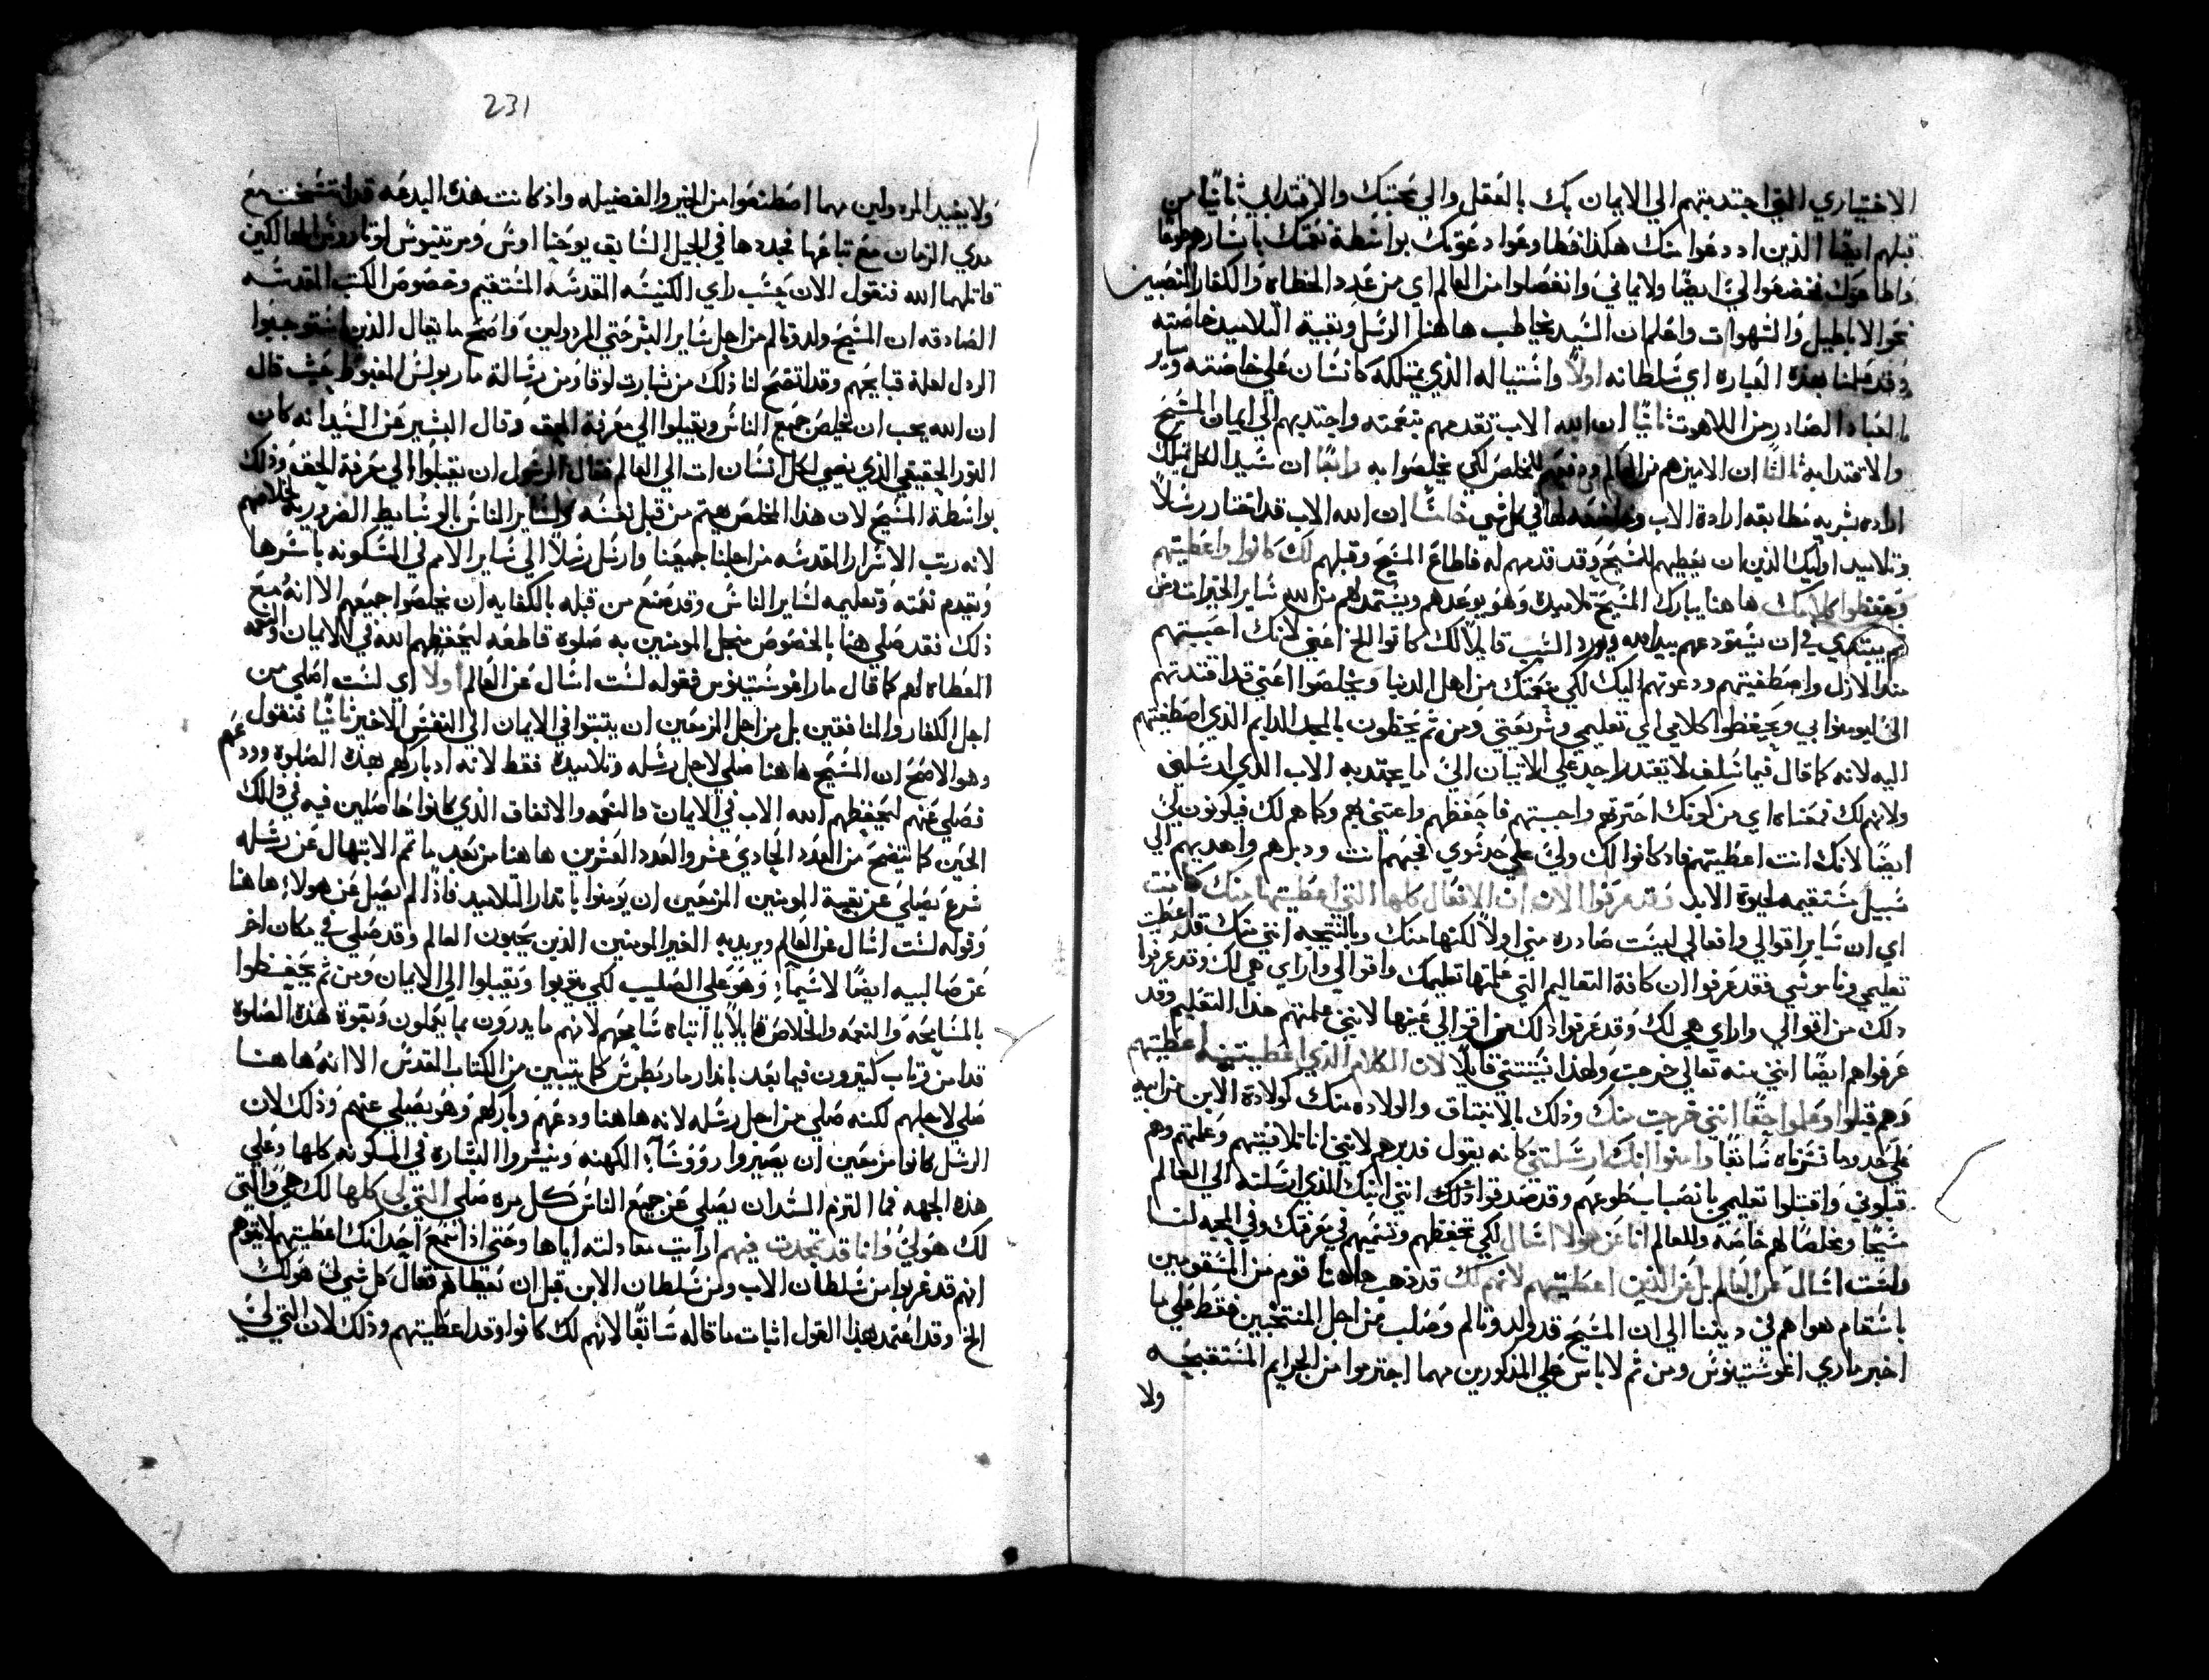 الاختياري التي اجتدبتهم الي الايمان بك بالعقل والي محبتك والاقتدا بي ثانيًا من
قبلهم ايضًا الذين اد دعوا منك هكذا فطاوعوا دعوتك بواسطة نعمتك باتسارهم طوعًا
نحو الاباطيل والشهوات واعلم ان السيد يخاطب هاهنا الرسل وبقية التلاميد خاصته
وقد علمنا بهذه العباره اي سلطانه اولاً واستياله الذي يمتلكه كانسان علي خاصته وساير
العباد الصادر من اللاهوت ثانيًا ان الله الاب تقدمهم بنعمته واجتدبهم الي ايمان المسيح
والاقتدا به ثالثًا ان الامير هم من العالم ودفعهم للمخلص لكي يخلصوا به رابعًا ان سيد الكل تملك
اراده بشريه مطابقه ارادة الاب وخاضعه لها في كل شي خامسًا ان الله الاب قد اختار رسلاً
وتلاميد اوليك الذين ان يعطيهم للمسيح وقد قدمهم له فاطاع المسيح وقبلهم لك كانوا واعطيتهم
وحفظوا كلامك هاهنا يبارك المسيح تلاميده وهو يوعدهم ويستمد لهم من الله ساير الخيرات ومن
ثم يبتدي في ان يستودعهم بيد الله ويورد السبب قايلاً لك كانوا الخ اعني لانك احببتهم
مند الازل واصطفيتهم ودعوتهم اليك لكي بنعمتك من اهل الدنيا ويخلصوا اعني قد اقتدتهم
اليّ ليومنوا بي ويحفظوا كلامي اي تعليمي وشريعتي ومن ثم يحظون بالمجد الدايم الذي اصطفيتهم
اليه لانه كما قال فيما سلف لا يقتدر احد علي الاتيان اليّ ما يجتدبه الاب الذي ارسلني
ولانهم لك فمعناه اي من كونك اخترتهم واحببتهم فاحفظهم واعتني بهم وكما هم لك فيكونون لي
ايضًا لانك انت اعطيتهم فاد كانوا لك وليّ علي حد سوي فحبهم انت ودبرهم واهديهم الي
سبيل مستقيمه لحيوة الابد وقد عرفوا الان ان الافعال كلها التي اعطيتها منك كانت
اي ان ساير اقوالي وافعالي ليست صادره مني اولاً لكنها منك وبالنتيجه انني منك قد اعطيت
تعليمي وناموسي فقد عرفوا ان كافة التعاليم التي علمتها تعليمك واقوالي واراي هي لك وقد عرفوا
دلك من اقوالي واراي هي لك وقد عرفوا دلك من اقوالي عينها لانني علمتهم هذا التعليم وقد
عرفوا هم ايضًا انني منه تعالي خرجت ولهذا يستثني قايلاً لان الكلام الذي اعطيتنيه اعطيتهم
وهم قبلوا وعلموا حقًا انني خرجت منك وذلك بالانبتاق والولاده منك كولادة الابن من ابيه
علي حد ما فسرناه سابقًا وامنوا انك ارسلتني كانه يقول قد برهم لانني انا تلافيتهم وعلمتهم وهم
قبلوني واقتبلوا تعليمي بانصباب طوعهم وقد صدقوا دلك انني ابنك الذي ارسلته الي العالم
مسيحًا ومخلصًا لهم خاصه وللعالم انا عن هولا اسال لكي تحفظهم وتتممهم في معرفتك وفي المحبه لنا
ولست اسال عن العالم بل عن الذين اعطيتنيهم لانهم لك قد ذهب هاهنا قوم من المسقومين
باسقام هواهم في ديننا الي ان المسيح قد ولد وتالم وصلب من اجل المنتخبين فقط علي ما
اخبر ماري اغوستينوس ومن ثم لا باس علي المذكورين مهما اجترموا من الجرايم المستقبحه
ولا
231
ولا يفيد المردولين مهما اصطنعوا من الخير والفضيله واذ كانت هذه البدعه قد انتسخت مع
مدي الزمان مع تباعها فجددها في الجيل السابق يوحنا اوس ومرتينوس لوتاروس الهالكين
قاتلهما الله فنقول الان بحسب راي الكنيسه المقدسه المستقيم ونصوص الكتب المقدسه
الصادقه ان المسيح ولد وتالم من اجل ساير البشر حتي المردولين واضح ما يقال الذين استوجبوا
الردل لعلة قبايحهم وقد اتضح لنا ذلك من بشارت لوقا ومن رسالة مار بولس المغبوط حيث قال
ان الله يحب ان يخلص جميع الناس ويقبلوا الي معرفة الحق وقال البشير عن السيد انه كان
النور الحقيقي الذي يضي لكل انسان ات الي العالم فقال الرسول ان يقبلوا الي معرفة الحق وذلك
بواسطة المسيح لان هذا المخلص يهتم من قبل نفسه ولساير الناس بالوسايط الضروريه لخلاصهم
لانه رتب الاسرار المقدسه من اجلنا جميعنا وارسل رسلاً الي ساير الامم في المسكونه باسرها
ويقدم نعمته وتعليمه لساير الناس وقد صنع من قبله بالكفايه ان يخلصوا جميعهم الا انه مع
ذلك فقد صلي هنا بالخصوص من اجل المومنين به صلوة قاطعه ليحفظهم الله في الايمان والنعمه
المعطاه لهم كما قال مار اغوستينوس فقوله لست اسال عن العالم اولاً اي لست اصلي من
اجل الكفار والمنافقين بل من اجل المزمعين ان يثبتوا في الايمان الي النفس الاخير ثانيًا فنقول
وهو الاصح ان المسيح هاهنا صلي لاجل رسله وتلاميده فقط لانه اد باركهم بهذه الصلوه وودعهم
فصلي عنهم ليحفظهم الله الاب في الايمان والنعمه والاتفاق الذي كانوا حاصلين فيه في ذلك
الحين كما يتضح من العدد الحادي عشر والعدد العشرين هاهنا من بعد ما تم الابتهال عن رسله
شرع يصلي عن بقية المومنين المزمعين ان يومنوا بانذار التلاميد فاذًا لم يصل عن هولاء هاهنا
وقوله لست اسال عن العالم ويريد به الغير المومنين الذين يحبون العالم وقد صلي في مكان اخر
عن صالبيه ايضًا لاسيمآ وهو علي الصليب لكي يتوبوا ويقبلوا الي الايمان ومن ثم يحفظوا
بالمسامحه والنعمه والخلاص قايلاً يا ابتاه سامحهم لانهم ما يدرون بما يعملون وبقوة هذه الصلوة
قد امن وتاب كثيرون فيما بعد بانذار مار بطرس كما يتبين من الكتاب المقدس الا انه هاهنا
صلي لاجلهم لكنه صلي من اجل رسله لانه هاهنا ودعهم وباركهم وهو يصلي عنهم وذلك لان
الرسل كانوا مزمعين ان يصيروا رؤوسآء الكهنه ويبشروا البشاره في المسكونه كلها وعلي
هذه الجهه فما التزم السيد ان يصلي عن جميع الناس كل مره صلي التي لي كلها لك هي والتي
لك هو لي وانا قد تمجدت فيهم ارايت معادلته اياها وحتي اذا سمع احد انك اعطيتهم لا يتوهم
انهم قد غربوا من سلطان الاب ومن سلطان الابن قبل ان تعطاهم فقال كل شي لي هو لك
الخ وقد اعتمد بهذا القول اثبات ما قاله سابقًا لانهم لك كانوا وقد اعطيتهم وذلك لان التي لي